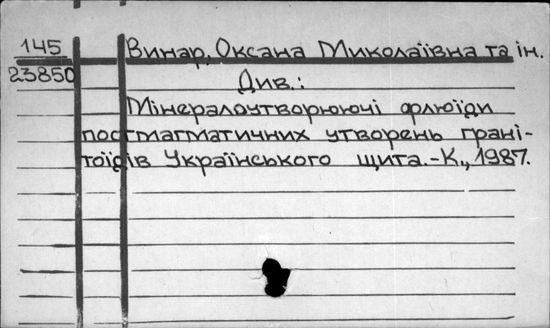 145 Винар, Оксана Миколаївна та ін.
23850 Див.:
Мінералоутворюючі флюїди
постмагматичних утворень грані-
тоїдів Українського щита.-К., 1987.